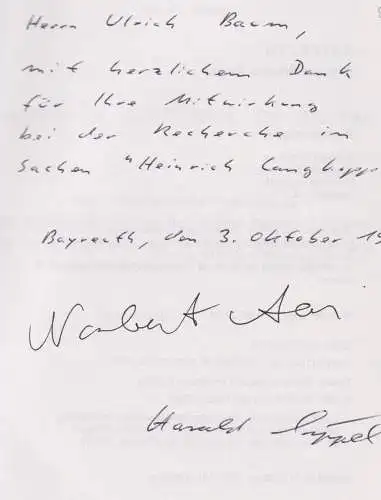 Herrn Ulrich Baum,
mit herzlichem Dank
für Ihre Mitwirkung
bei der Recherche in
Sachen "Heinrich
Bayreuth, den 3. Oktober 19
Norbert
Harald